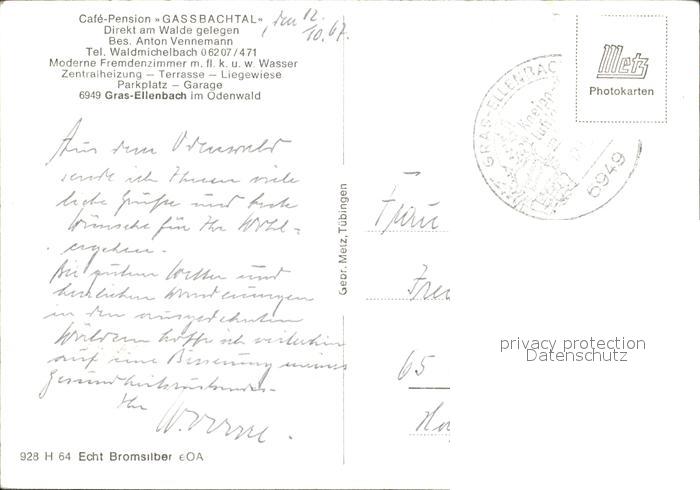 Café-Pension »GASSBACHTAL«
Direkt am Walde gelegen
Bes. Anton Vennemann
Tel. Waldmichelbach 06207/471
Moderne Fremdenzimmer m. fl. k. u. w. Wasser
Zentralheizung – Terrasse – Liegewiese
Parkplatz – Garage
6949 Gras-Ellenbach im Odenwald
, den 12.
10. 67.
Aus dem Odenwald
sende ich Ihnen viele
liebe Grüße und beste
Wünsche für Ihr Wohl=
ergehen.
Bei gutem Wetter und
herrlichen Wanderungen
in den ausgedehnten
Wäldern hoffe ich weiterhin
auf eine Besserung meines
Gesundheitszustandes.
Ihr
928 H 64 Echt Bromsilber
Gebr. Metz, Tübingen
GRAS-ELLENBACH
6949
Metz
Photokarten
Frau
65
privacy protection
Datenschutz